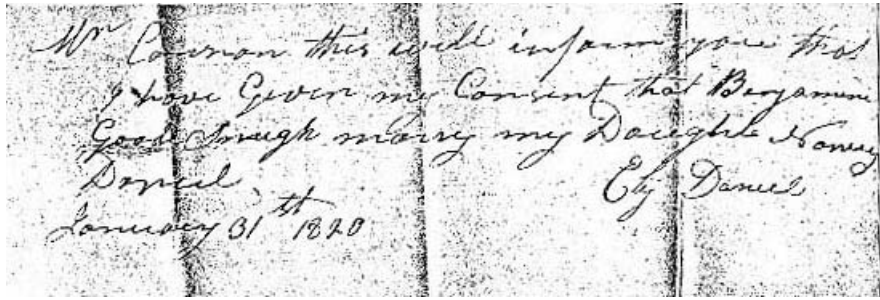 Mr Cannon this will inform you that
I have Given my Consent that Benjamine
Good Enough marry my Daughter Nancy
Daniel
Ely Daniel
January 31st 1820